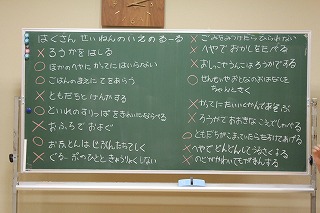 はくさん せいねんのいえのるーる
× ろうかをはしる
○ ほかのへやに かってにはいらない
○ ごはんのまえに てをあらう
× ともだちとけんかする
○ といれのすりっぱをきれいにならべる
× おふろでおよぐ
○ おふとんは じぶんたちでしく
× ぐるーぷのひとときょうりょくしない
× ごみをみつけたらひろわない
× へやでおかしをたべる
× おしっこやうんこはろうかでする
○ せんせいやおとなのおはなしを
ちゃんときく
× かってにたいいくかんであそぶ
× ろうかでおおきなこえでしゃべる
○ ともだちがこまっていたらたすけてあげる
× へやでどんどんしてうるさくする
× のどがかわいてもがまんする